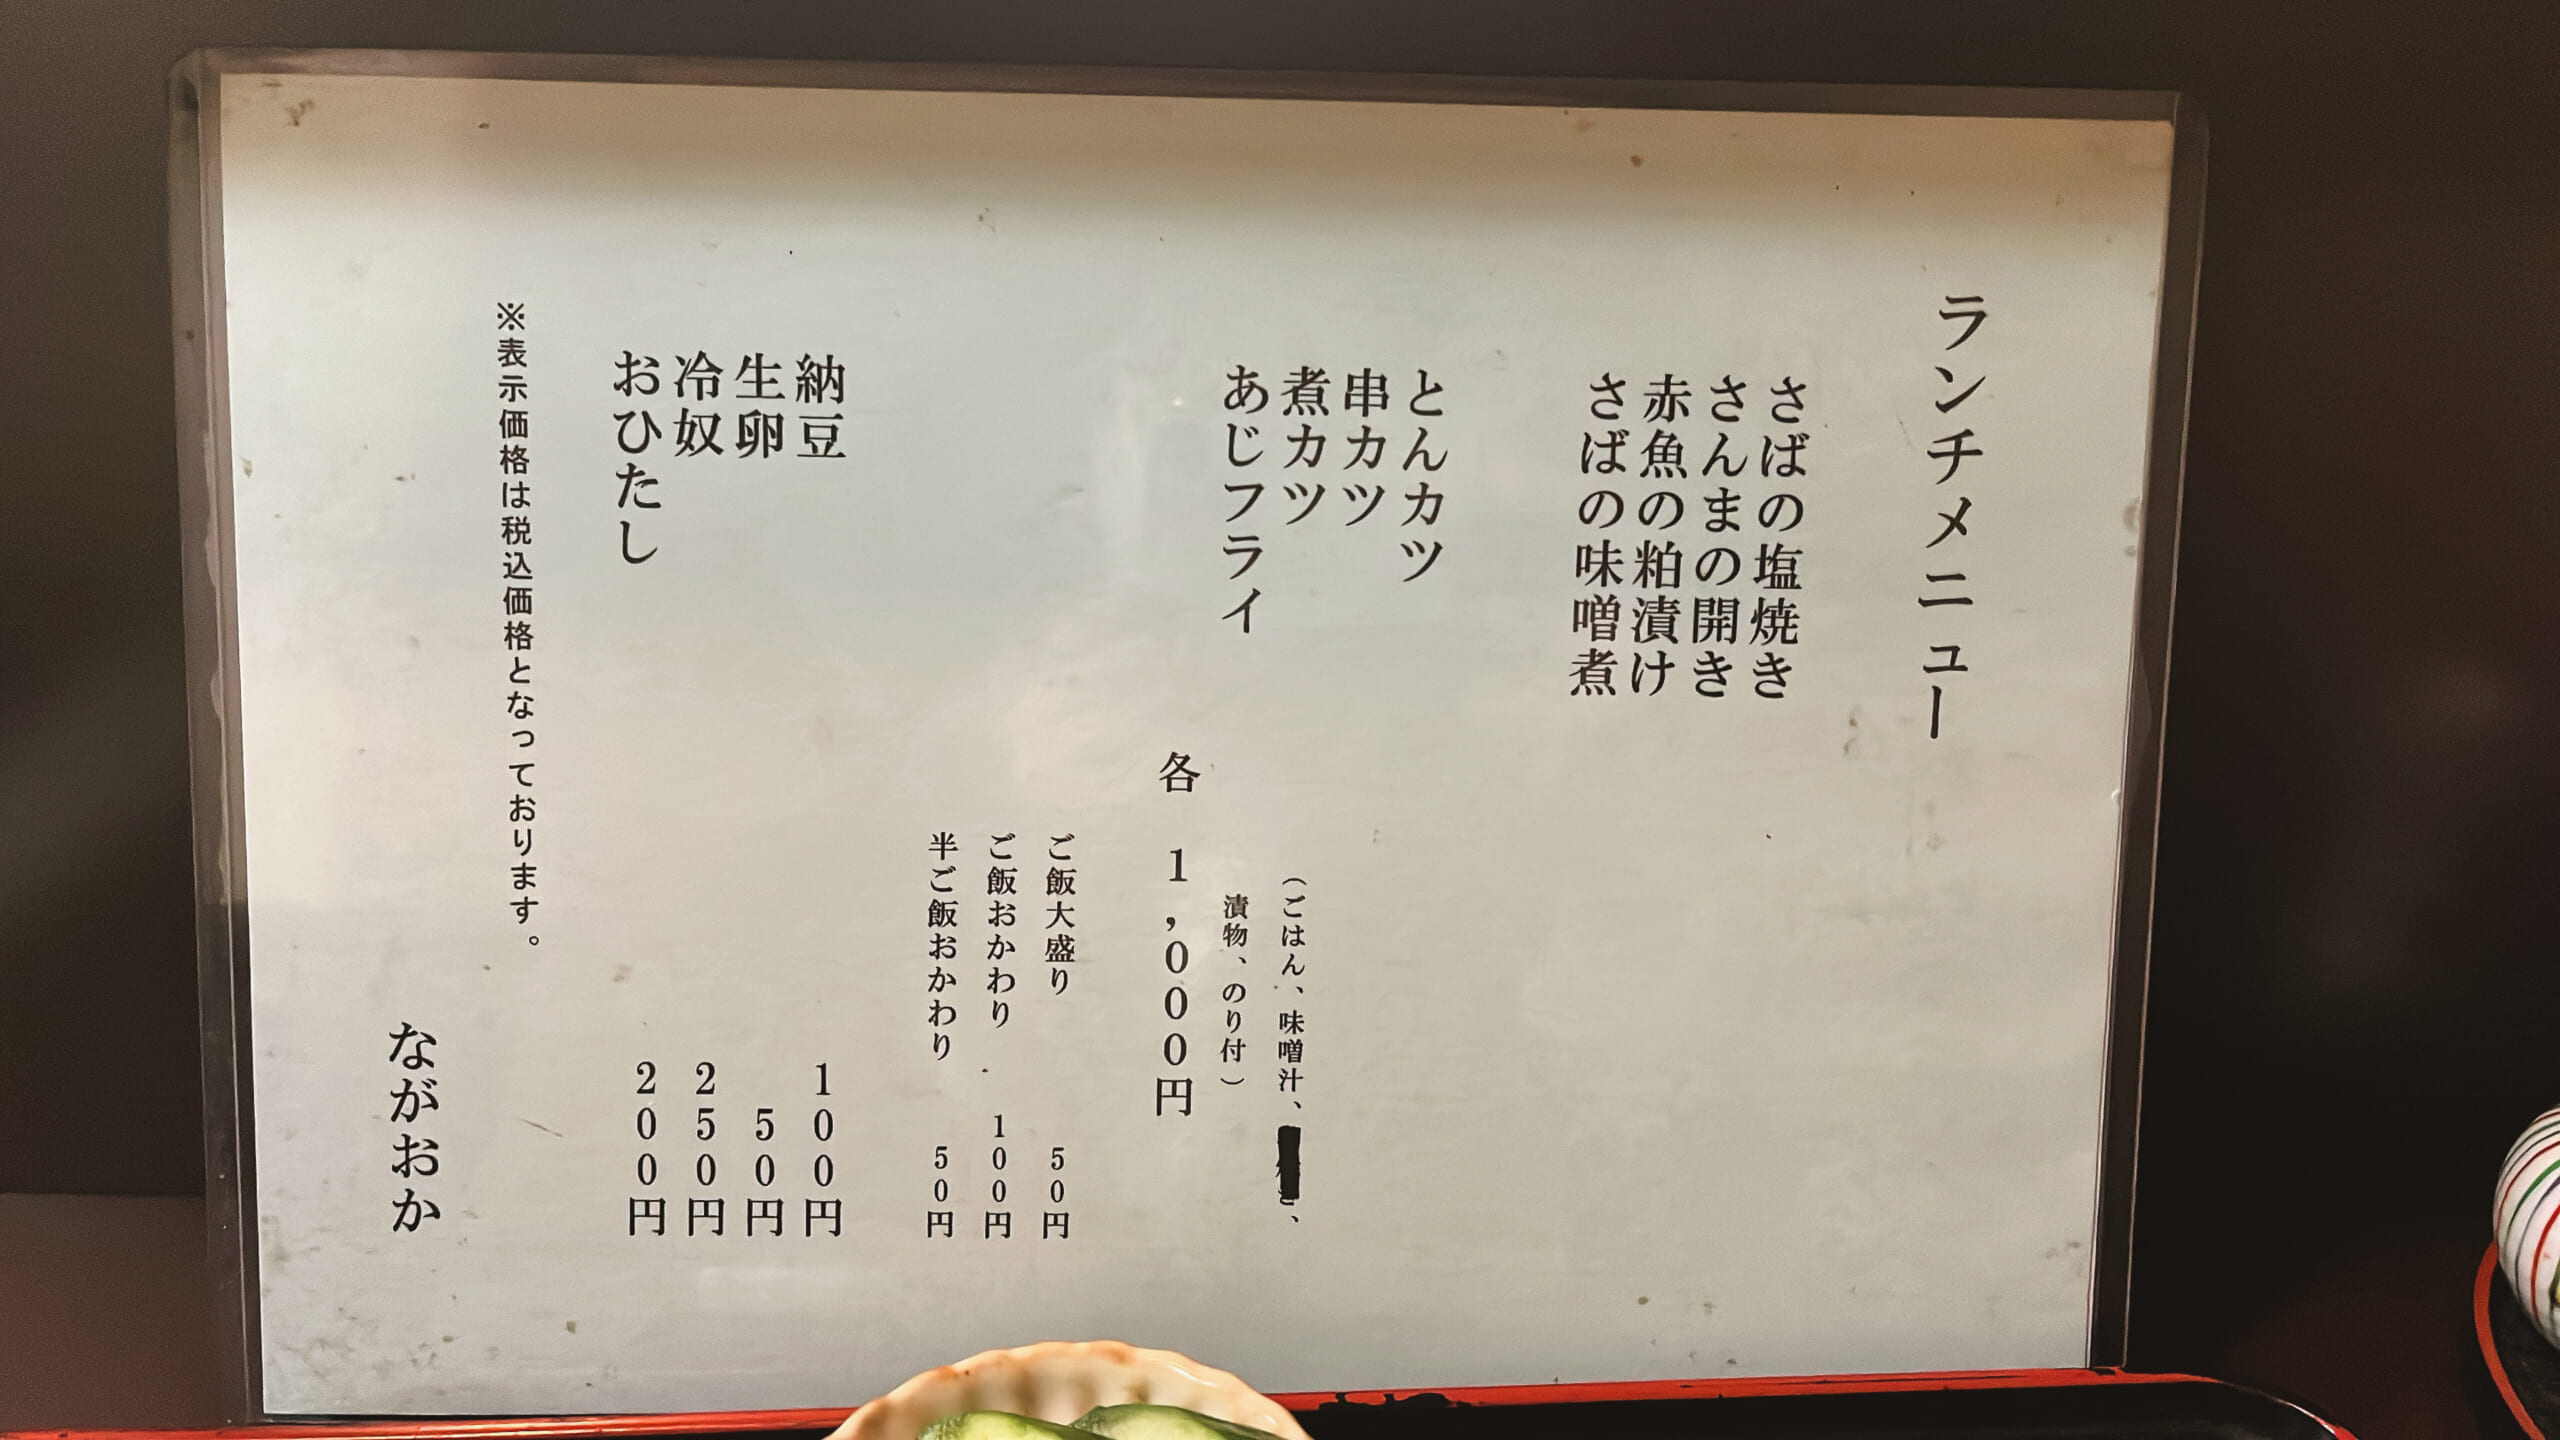 ランチメニュー
さばの塩焼き
さんまの開き
赤魚の粕漬け
さばの味噌煮
とんカツ
串カツ
煮カツ
あじフライ
（ごはん、味噌汁、、
漬物、のり付）
各 1,000円
ご飯大盛り 50円
ご飯おかわり 100円
半ご飯おかわり 50円
納豆 100円
生卵 50円
冷奴 250円
おひたし 200円
※表示価格は税込価格となっております。
ながおか